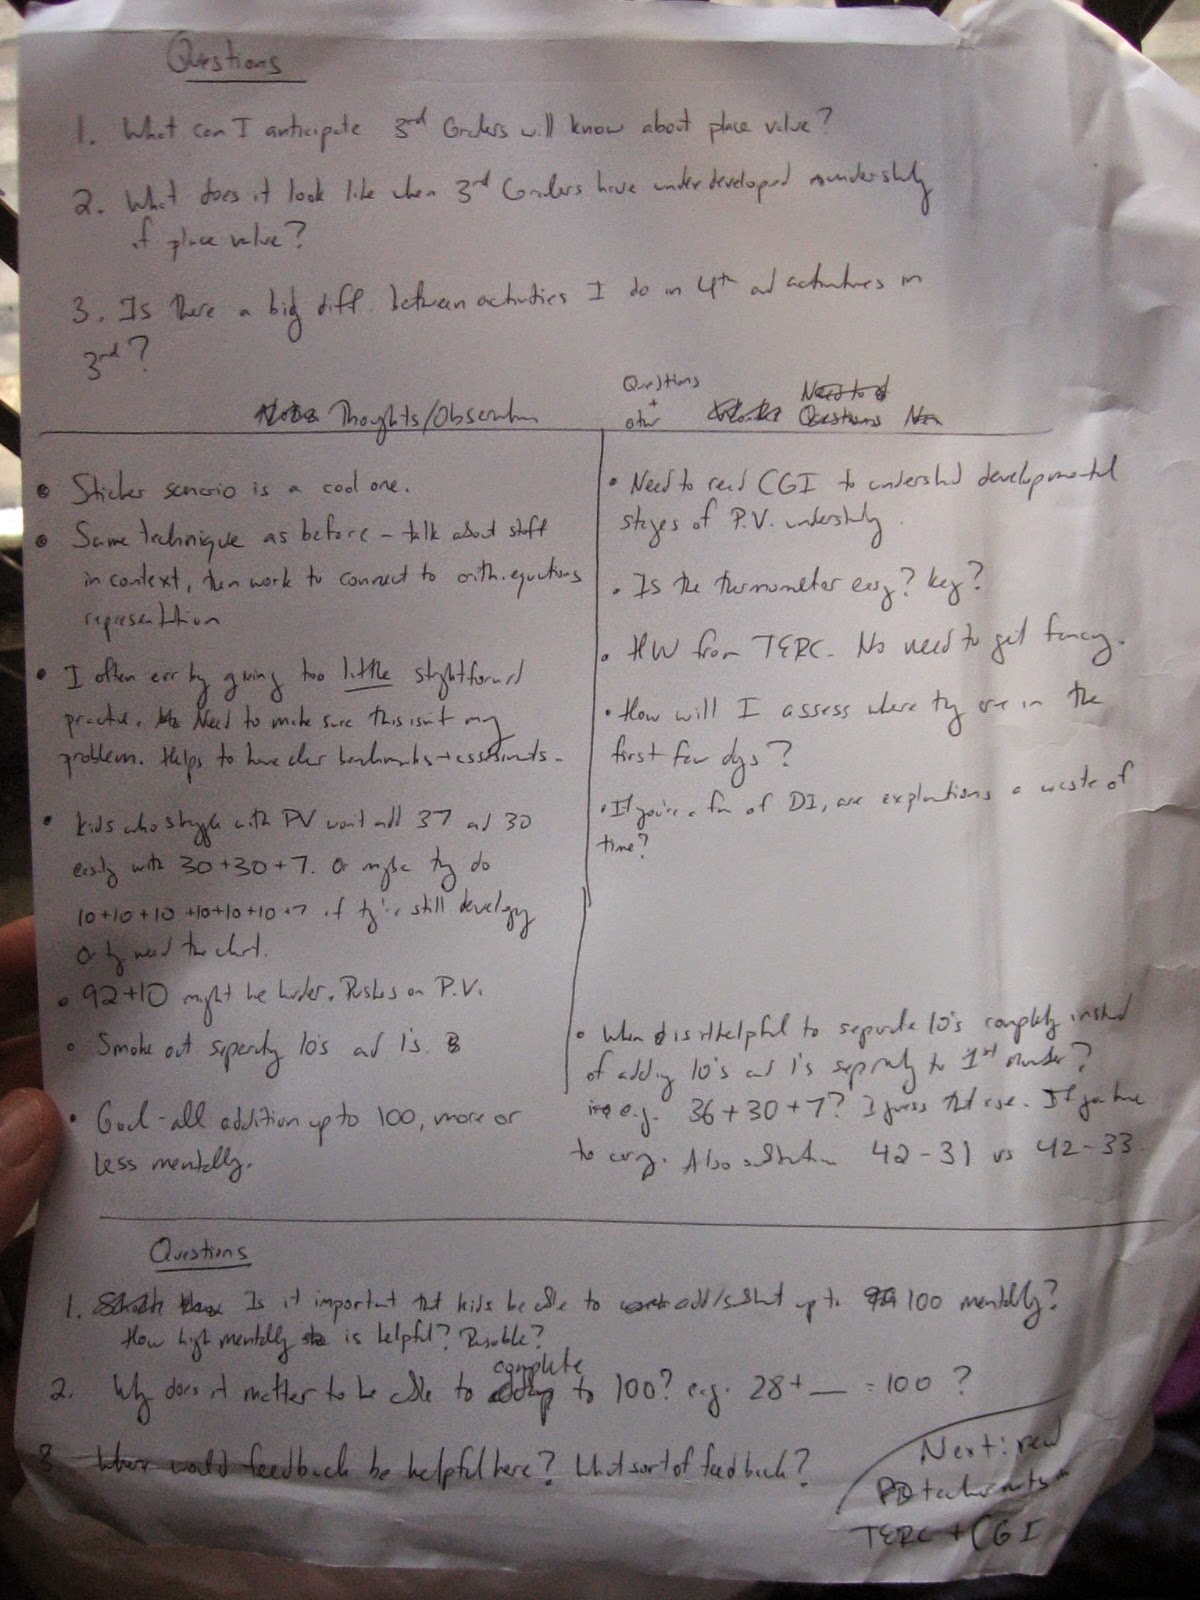 Questions
1. What can I anticipate 3rd Graders will know about place value?
2. What does it look like when 3rd Graders have underdeveloped understanding
of place value?
3. Is there a big diff. between activities I do in 4th and activities in
3rd?
Thoughts/Observation
Questions
+
other
Need to
Questions
• Sticker scenerio is a cool one.
• Same technique as before - talk about stuff
in context, then work to connect to arith. equations
representation
• I often err by giving too little straightforward
practice. Need to make sure this isn't my
problem. Helps to have clear benchmarks + assessments.
• Kids who struggle with PV won't add 37 and 30
easily with 30+30+7. Or maybe they do
10+10+10+10+10+10+7 if they're still developing
Or they need the chart.
• 92+10 might be harder. Pushes on P.V.
• Smoke out seperating 10's and 1's.
• Goal - all addition up to 100, more or
less mentally.
• Need to read CGI to understand developmental
stages of P.V. understanding.
• Is the thermometer easy? key?
• HW from TERC. No need to get fancy.
• How will I assess where they are in the
first few days?
• If you're a fan of DI, are explanations a waste of
time?
• When is it helpful to seperate 10's completely instead
of adding 10's and 1's seprately to 1st number?
e.g. 36+30+7? I guess that one. If you have
to carry. Also subtraction 42-31 vs 42-33.
Questions
1. Is it important that kids be able to add/subtract up to 100 mentally?
How high mentally is helpful? Possible?
2. Why does it matter to be able to complete to 100? e.g. 28+__=100?
3. Where would feedback be helpful here? What sort of feedback?
Next: read
PD teacher notes in
TERC + CGI